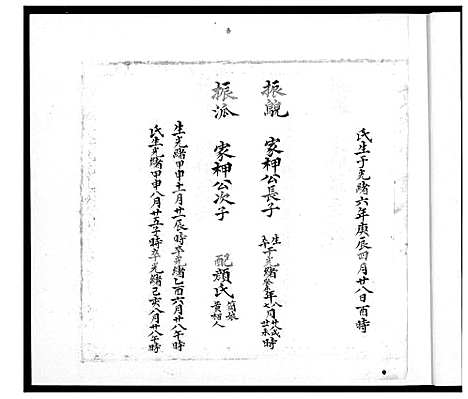 氏生于光緒六年庚辰四月廿八日酉時
振 家神公長子 生卒于光緒癸年八月廿戌
振派 家神公次子 配顏氏 簡娘 黃妲人
生光緒甲申十一月廿一辰時卒光緒乙酉六月廿八午時
氏生光緒甲申八月廿五子時卒光緒己亥八月廿八午時